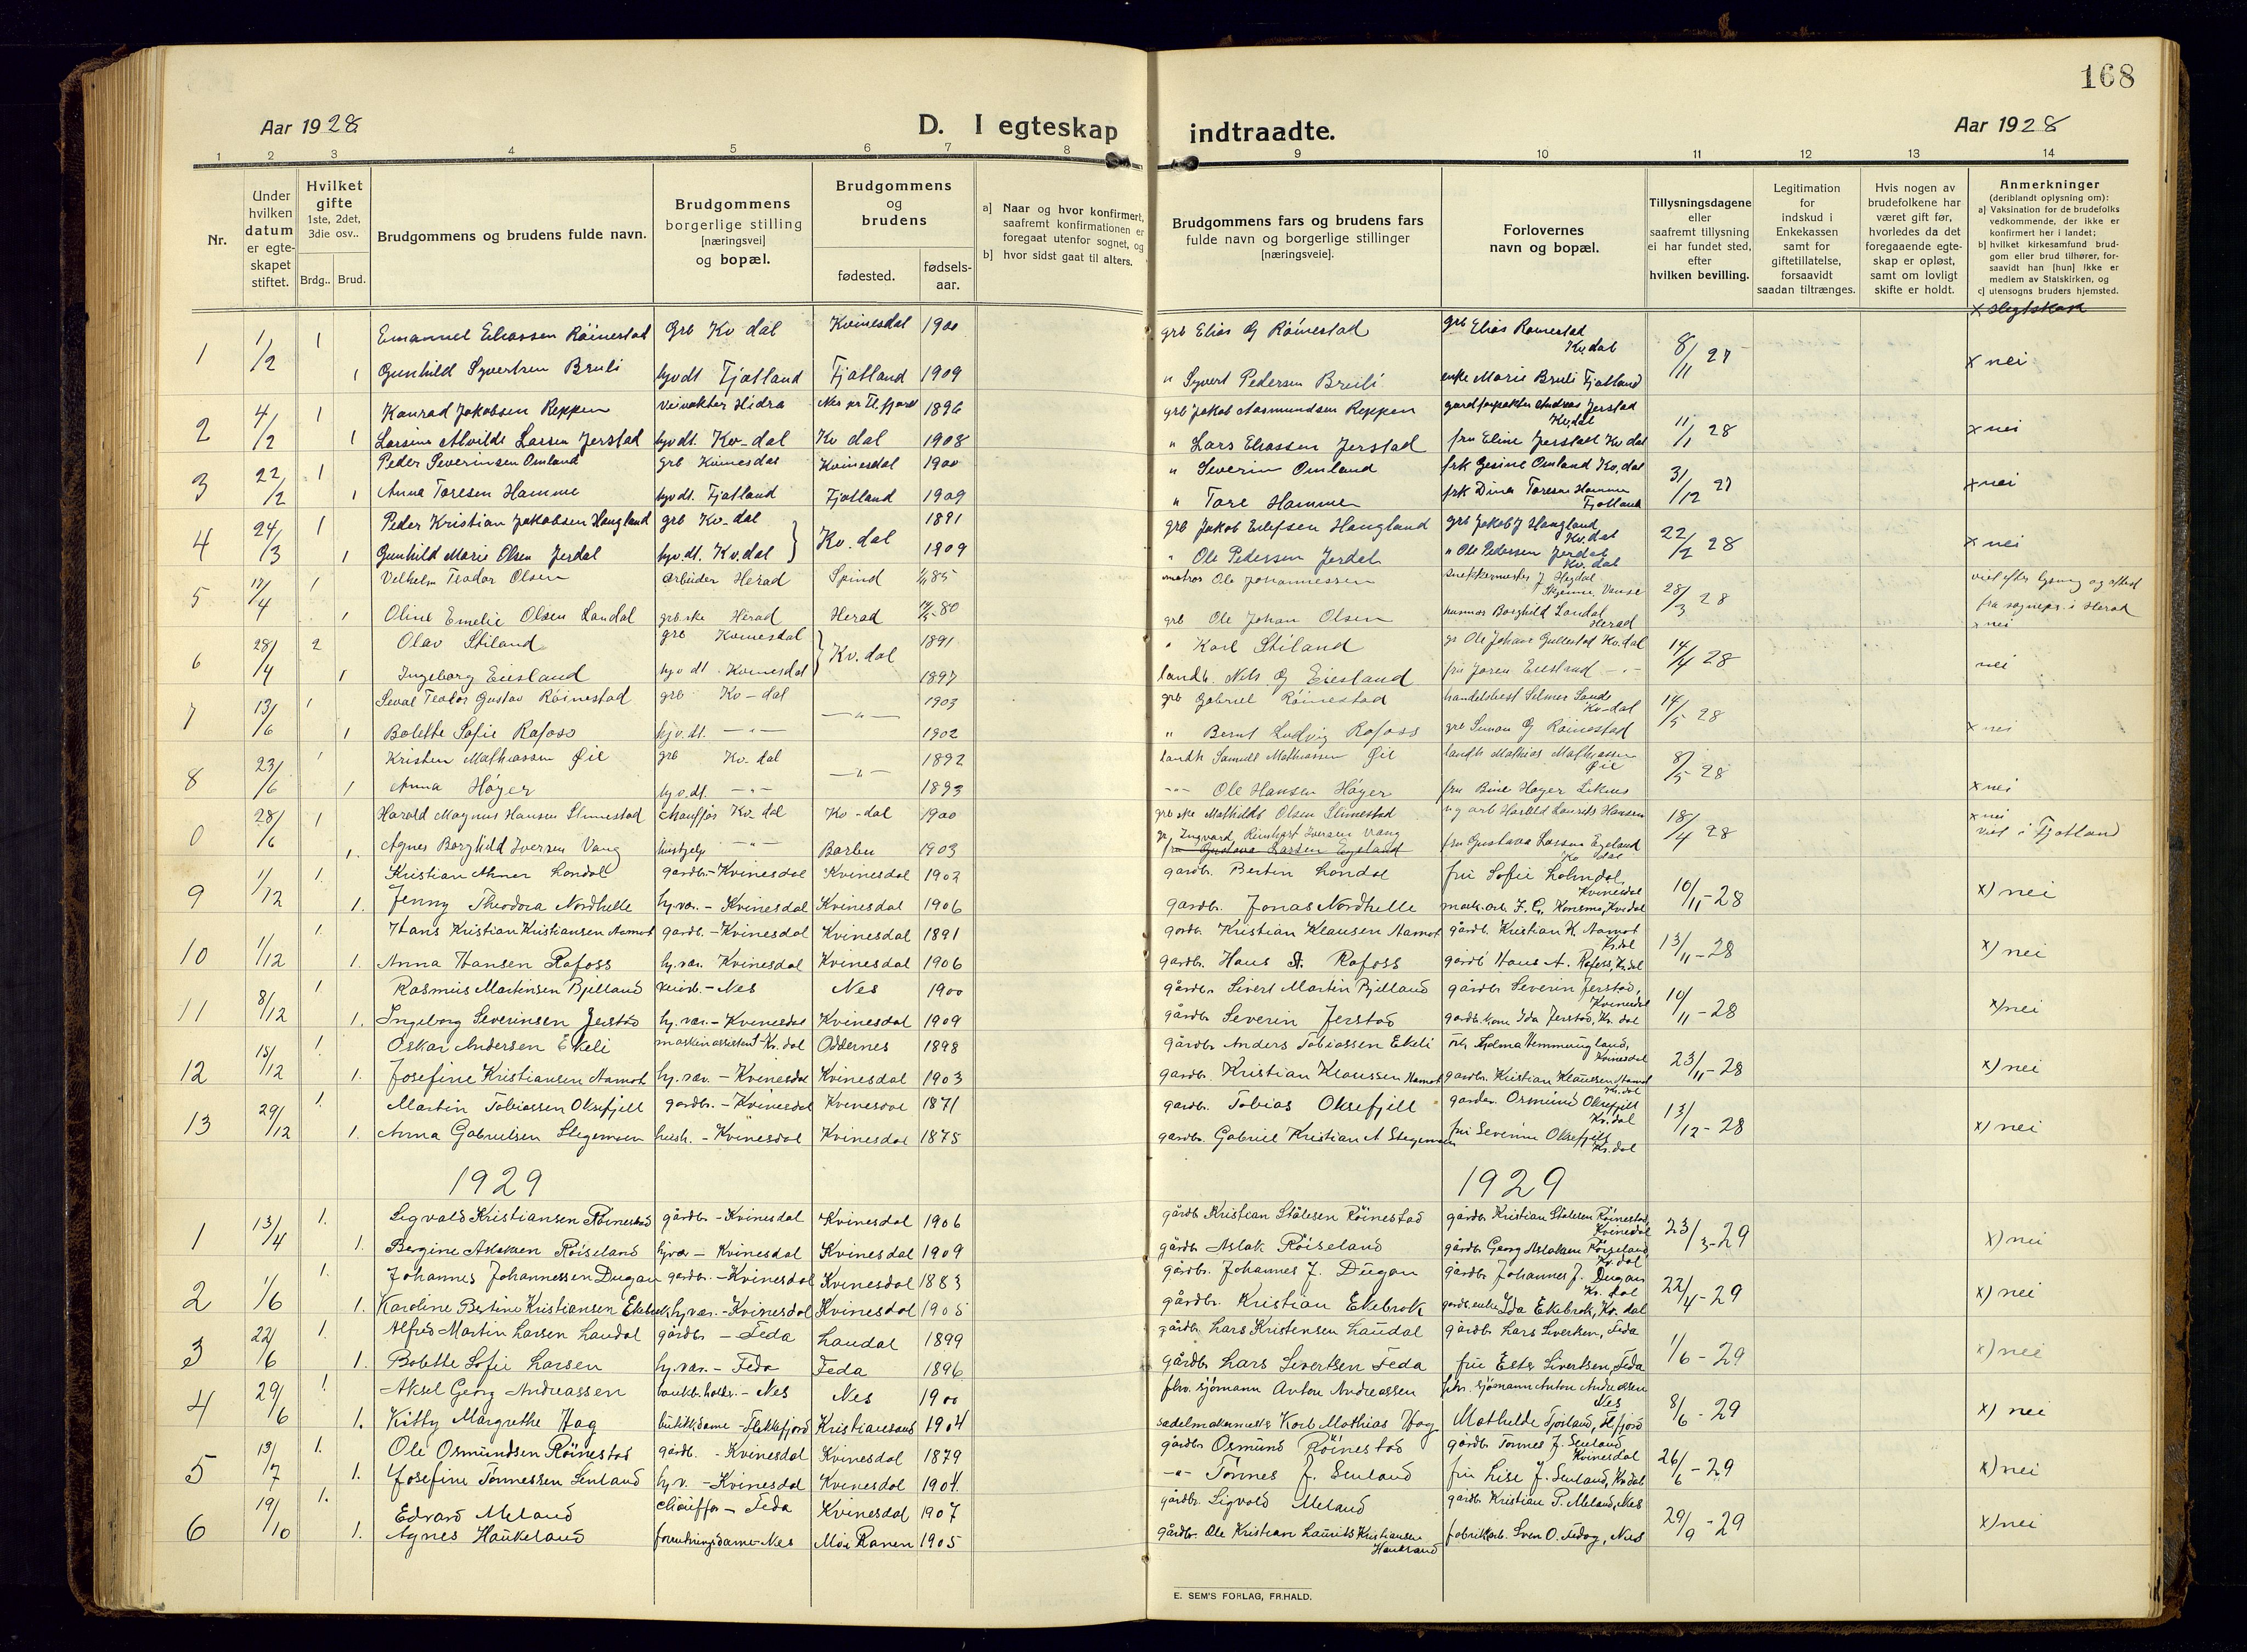 168
Aar 1928
D. I egteskap indtraadte.
Aar 1928
1 2 3 4 5 6 7 8 9 10 11 12 13 14
Nr.
Under hvilken datum er egteskapet stiftet.
Hvilket gifte 1ste, 2det, 3die osv..
Brdg.. Brud.
Brudgommens og brudens fulde navn.
Brudgommens borgerlige stilling [næringsvei] og bopæl.
Brudgommens og brudens
fødested. fødsels-aar.
a] Naar og hvor konfirmert, saafremt konfirmationen er foregaat utenfor sognet, og
b] hvor sidst gaat til alters.
Brudgommens fars og brudens fars fulde navn og borgerlige stillinger [næringsveie].
Forlovernes navn og bopæl.
Tillysningsdagene eller saafremt tillysning ei har fundet sted, efter hvilken bevilling.
Legitimation for indskud i Enkekassen samt for giftetillatelse, forsaavidt saadan tiltrænges.
Hvis nogen av brudefolkene har været gift før, hvorledes da det foregaaende egteskap er opløst, samt om lovligt skifte er holdt.
Anmerkninger (deriblandt oplysning om):
a] Vaksination for de brudefolks vedkommende, der ikke er konfirmert her i landet;
b] hvilket kirkesamfund brudgom eller brud tilhører, forsaavidt han [hun] ikke er medlem av Statskirken, og
c] utensogns bruders hjemsted.
x slegtskap
1 1/2 1 Emanuel Eliassen Röinestad Grb Kv dal Kvinesdal 1900 grb Elias G Röinestad grb Elias Röinestad Kv.dal 8/11 27 x nei
1 Gunhild Syvertsen Breili hjv dt Fjotland Fjotland 1909 " Syvert Pedersen Breili enke Marie Breili Fjotland
2 4/2 1 Konrad Jakobsen Reppen veivokter Hidra Nes pr Fl.fjord 1896 grb Jakob Aasmundsen Reppen gardforpakter Andreas Jerstad Kv.dal 11/1 28 x nei
1 Larsine Alvilde Larsen Jerstad hjv dt. Kv-dal Kv dal 1908 " Lars Eliassen Jerstad fru Eline Jerstad Kv dal
3 22/2 1 Peder Severinsen Omland grb Kvinesdal Kvinesdal 1900 " Severin Omland frk Gesine Omland Kv.dal 31/12 27 x nei
1 Anna Toresen Hamme hjv dt. Fjotland Fjotland 1909 " Tore Hamme frk Dina Toresen Hamme Fjotland
4 24/3 1 Peder Kristian Jakobsen Haugland grb Kv-dal Kv.dal 1891 grb Jakob Eilefsen Haugland grb Jakob J Haugland Kv.dal 22/2 28 x nei
1 Gunhild Marie Olsen Jerdal hjv.dt. Kv.dal 1909 " Ole Pedersen Jerdal " Ole Pedersen Jerdal Kv.dal
5 17/4 1 Vilhelm Teodor Olsen arbeider Herad Spind 85 matros Ole Johannessen snekkermester J Hegdal Vanse 28/3 28 viet efter lysning og attest
1 Oline Emelie Olsen Landal grb.ske Herad Herad 80 grb Ole Johan Olsen husmor Borghild Landal Herad fra sognepr. i Herad x nei
6 28/4 2 Olav Stiland grb Kvinesdal Kv.dal 1891 " Karl Stiland gr Ole Johan Gullestad Kv.dal 14/4 28 nei
1 Ingeborg Eiesland hjv dt. Kvinesdal 1897 landh. Nils G Eiesland fru Joren Eiesland -"-
7 13/6 1 Seval Teodor Gustav Röinestad grb Kv-dal -"- 1903 grb Gabriel Röinestad handelsbest Selmer Sande Kv-dal 14/5 28 x nei
1 Bolette Sofie Rafoss hjv.dt. -"- 1902 " Bernt Ludvig Rafoss grb Simon G Röinestad
8 23/6 1 Kristen Mathiassen Øie grb Kv-dal -"- 1892 landh Samuel Mathiassen Øie landh Mathias Mathiassen Øie 8/5 28
1 Anna Höyer hjv.dt. -"- 1893 -"- Ole Hansen Höyer fru Bine Höyer Liknes x nei
0 28/6 1 Harald Magnus Hansen Slimestad chauffør Kv-dal Kv-dal 1900 grb ske Mathilde Olsen Slimestad Harald Laurits Hansen 18/4 28 x nei viet i Fjotland
1. Agnes Borghild Iversen Vang hushjelp -"- Barbu 1903 gr, Ingvard Reinhart Iversen Vang fru Gustava Larsen Egeland fru Gustava Larsen Egeland Kv dal
9 1/12 1. Kristian Abner Londal gardbr.-Kvinesdal Kvinesdal 1902 gardbr. Berten Londal fru Sofie Lohndal, Kvinesdal 10/11-28 x) nei
1. Jenny Theodora Nordhelle hj.vær.-Kvinesdal Kvinesdal 1906 gardbr. Jonas Nordhelle mask.arb. F. C. Konsmo, Kv.dal
10 1/12 1. Hans Kristian Kristiansen Aamot gardb.-Kvinesdal Kvinesdal 1891 gardbr. Kristian Klausen Aamot gårdb. Kristian K. Aamot Kv.dal 13/11-28 x) nei
1. Anna Hansen Rafoss hj.vær. Kvinesdal Kvinesdal 1906 gardbr. Hans A. Rafoss gårdb Hans A. Rafoss, Kv.dal
11 8/12 1 Rasmus Martinsen Bjelland -Nes Nes 1900 gårdbr. Sivert Martin Bjelland gårdbr Severin Jerstad, Kvinesdal 10/11-28 x) nei
1. Ingeborg Severinsen Jerstad hj.vær.-Kvinesdal Kvinesdal 1909 gårdbr Severin Jerstad gardb.kone Ida Jerstad, Kv.dal
12 15/12 1. Oskar Andersen Ekeli maskinassistent-Kv.dal Oddernes 1898 gårdbr Anders Tobiassen Ekeli frk. Selma Hemmingland, Kvinesdal 23/11-28 x) nei
1. Josefine Kristiansen Aamot hj.væv.-Kvinesdal Kvinesdal 1903 gardbr. Kristian Klaussen Aamot gardbr. Kristian Klaussen Aamot Kv.dal
13 29/12 1. Martin Tobiassen Oksefjell gardbr.-Kvinesdal Kvinesdal 1871 gardbr. Tobias Oksefjell gardbr. Osmund Oksefjell Kv.dal 13/12-28 x) nei
1. Anna Gabrielsen Stegemoen hush.-Kvinesdal Kvinesdal 1875 gardbr. Gabriel Kristian A Stegemoen fru Severine Oksefjell Kv.dal
1929 1929
1 13/4 1. Sigvald Kristiansen Röinestad gårdbr-Kvinesdal Kvinesdal 1906 gårdb Kristian Stålesen Röinestad gårdbr Kristian Stålesen Röinestad, Kvinesdal 23/3-29 x) nei
1. Bergine Aslaksen Röiseland hjvær-Kvinesdal Kvinesdal 1909 gårdbr Aslak Röiseland gårdbr Georg Aslaksen Röiseland Kv.dal
2 1/6 1. Johannes Johannessen Dugan gardbr.-Kvinesdal Kvinesdal 1883 gårdbr. Johannes J. Dugan gårdbr Johannes J. Dugan Kv.dal 22/4-29 x) nei
1. Karoline Bertine Kristiansen Ekebrok hj.vær.-Kvinesdal Kvinesdal 1905 gårdbr. Kristian Ekebrok gardb.enke Ida Ekebrok, Kv.dal
3 22/6 1. Alfred Martin Larsen Laudal gårdbr-Feda Laudal 1899 gårdbr Lars Kristensen Laudal gårdbr Lars Sivertsen, Feda 1/6-29 x) nei
1. Bolette Sofie Larsen hj.vær.-Feda Feda 1896 gårdbr Lars Sivertsen Feda fru Ester Sivertsen, Feda
4 29/6 1. Aksel Georg Andreassen -Nes Nes 1900 fhv. sjömann Anton Andreassen fhv. sjömann Anton Andreassen Nes 8/6-29 x) nei
1. Kitty Margrethe Hag butikkdame-Flekkefjord Kristiansand 1904 sadelmakermester Karl Mathias Hag Mathilde Fjosland, Fl.fjord
5 13/7 1. Ole Osmundsen Röinestad gårdb.-Kvinesdal Kvinesdal 1879 gårdbr Osmund Röinestad gårdbr Tonnes J. Senland Kvinesdal 26/6-29 x) nei
1. Josefine Tönnessen Senland hj.v.-Kvinesdal Kvinesdal 1904. -"- Tönnes J. Senland fru Lise J. Senland, Kv.dal
6 19/10 1. Edvard Meland chauffør-Feda Kvinesdal 1907 gårdbr. Sigvald Meland gårdb Kristian P. Meland, Nes 29/9-29 x) nei
1. Agnes Haukeland forretningsdame-Nes Moi Ranen 1905 gårdbr. Ole Kristian Laurits Kristiansen Haukland fabrikarb. Sven O. Fedog, Nes
E. SEM'S FORLAG, FR.HALD.